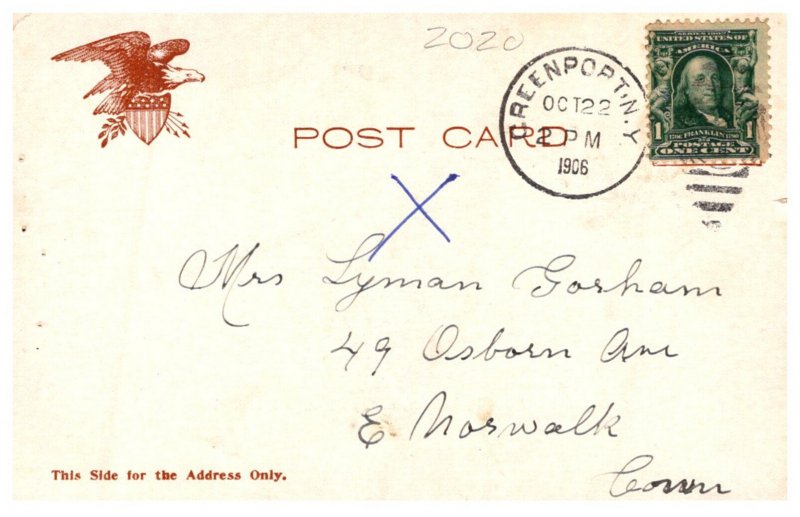 2020
GREENPORT, N.Y.
OCT 22
2 PM
1906
SERIES 1902
UNITED STATES OF
AMERICA
1706 FRANKLIN 1790
POSTAGE
1 ONE CENT 1
POST CARD
X
Mrs Lyman Gorham
49 Osborn Ave
E Norwalk
Conn
This Side for the Address Only.